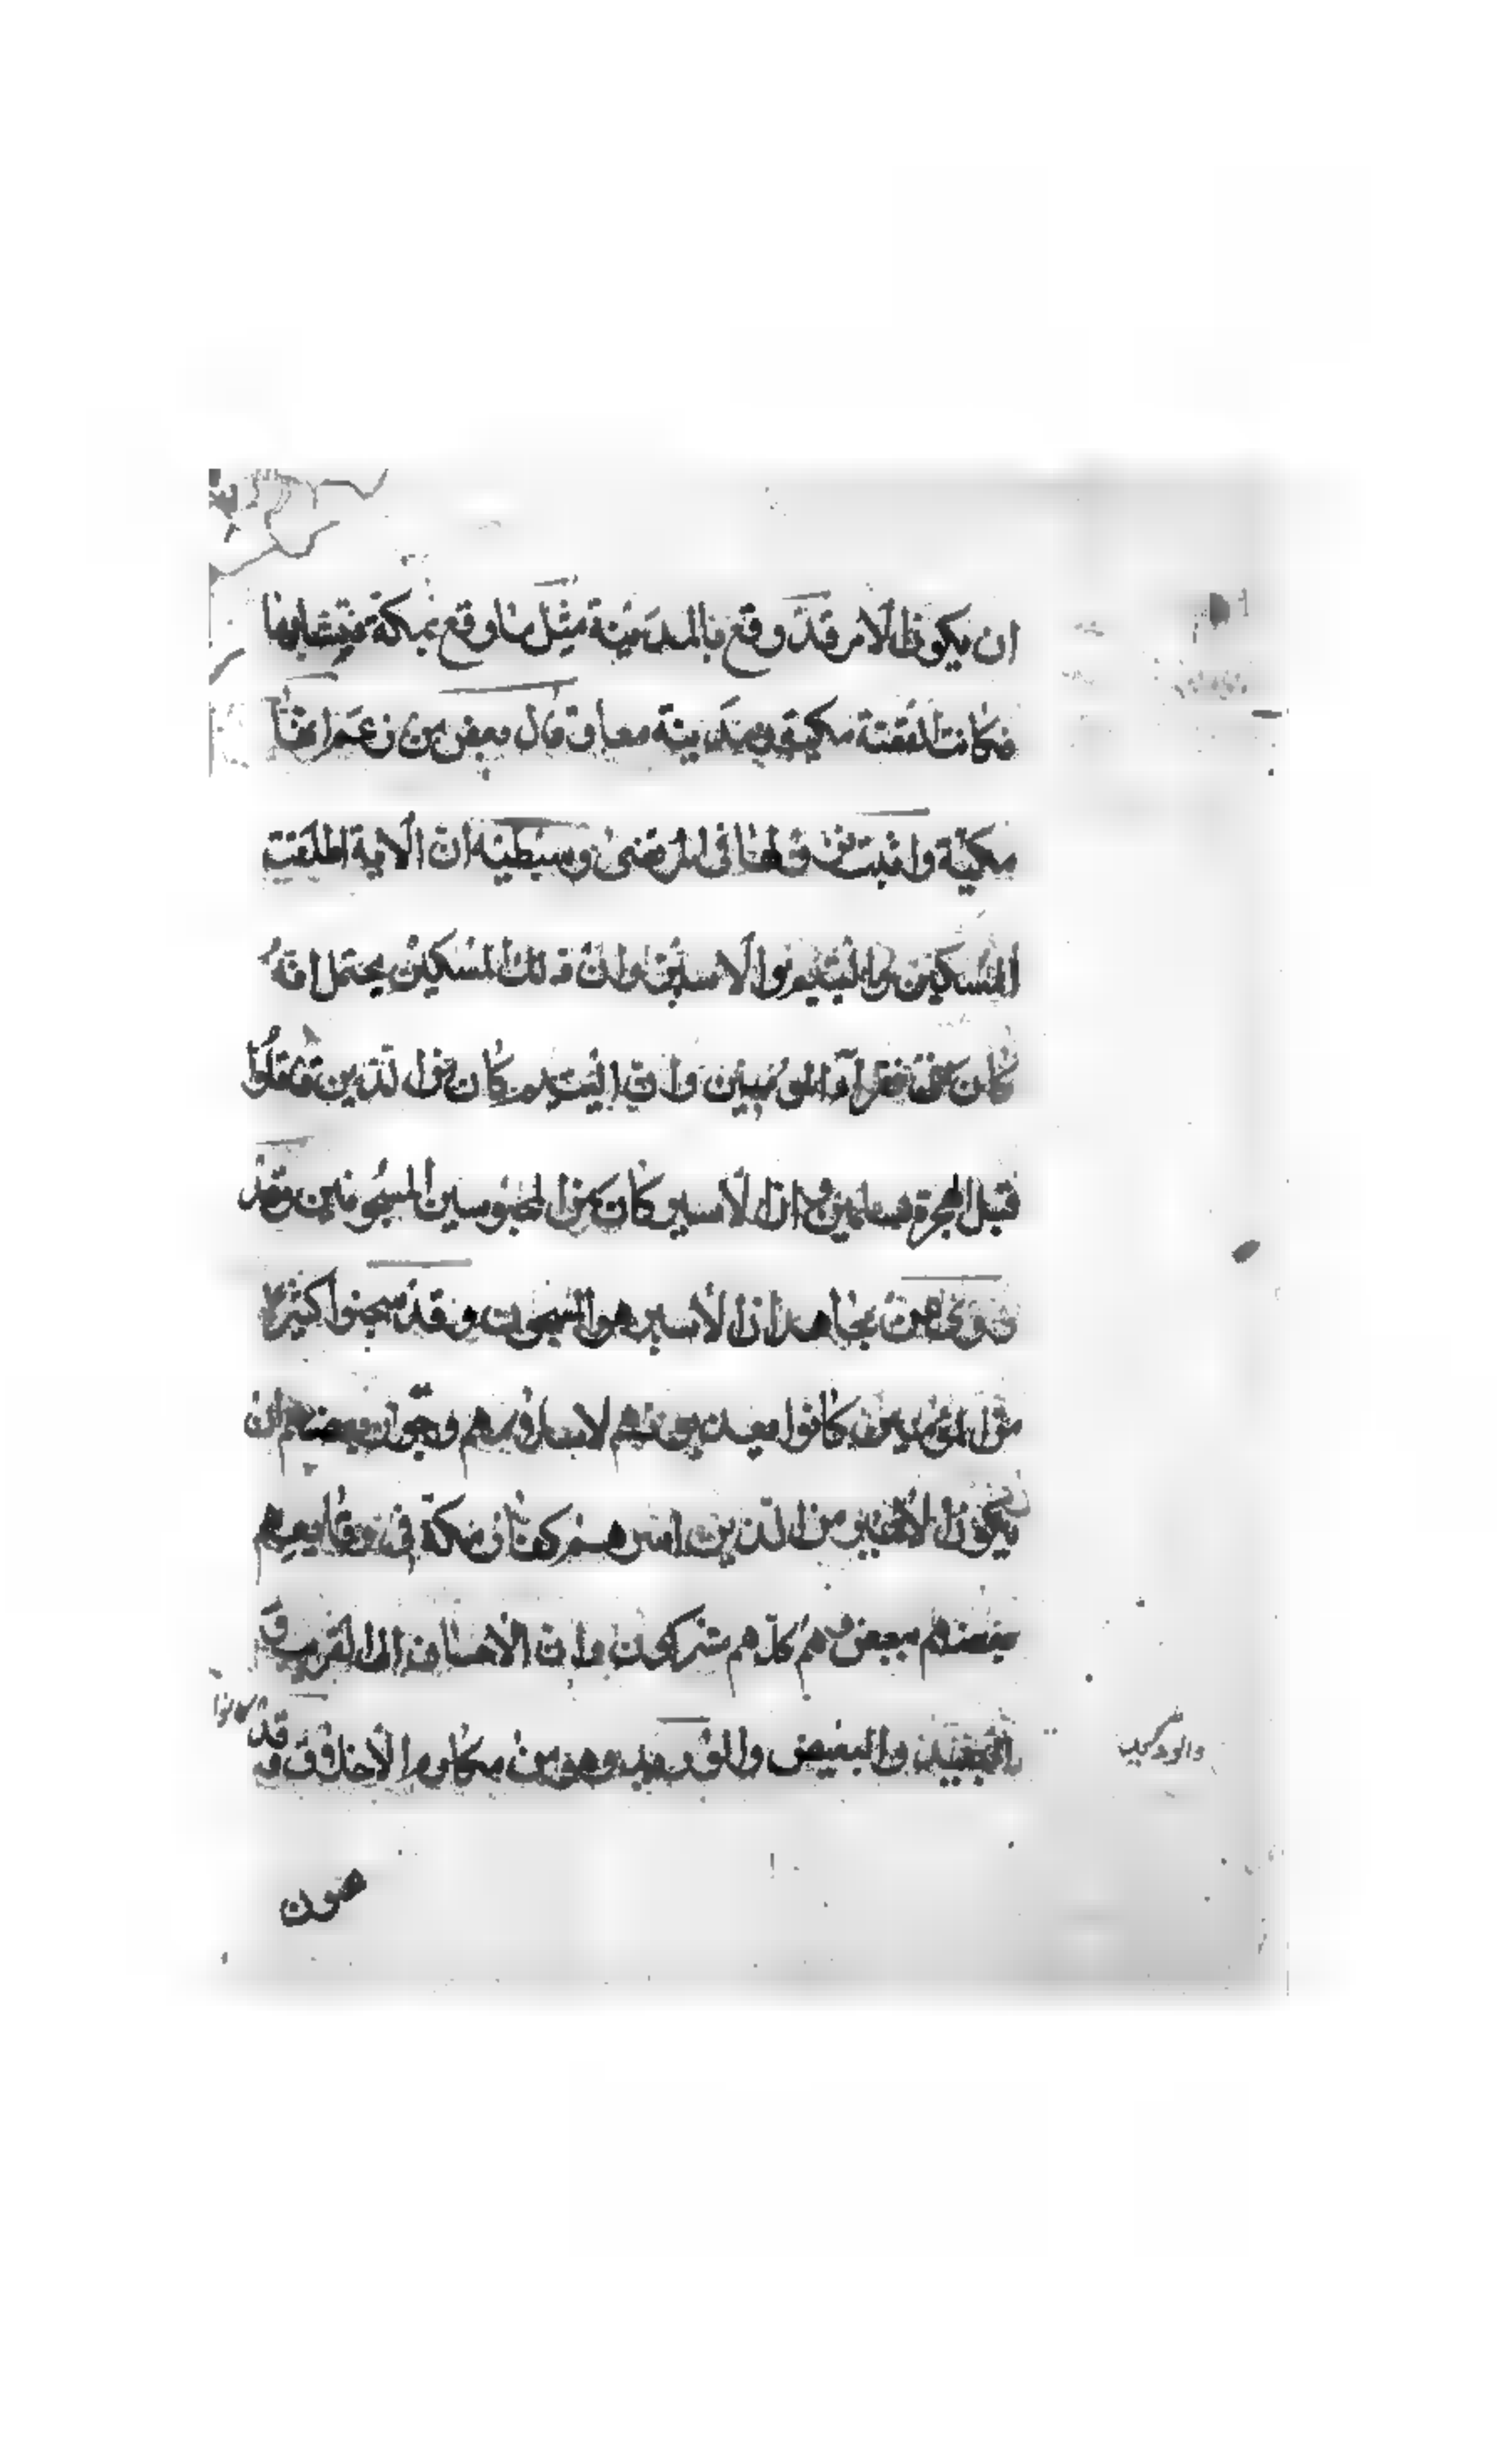 ان يكون الامر قد وقع بالمدينة مثل ما وقع بمكة فتشابها
فكانت القصة مكية ومدينة معا وقال بعض من زعم انها
مكية واثبت نزولها في المرتضى وسبطيه ان الآية اطلقت
المسكين واليتيم والاسير وان ذلك المسكين يحتمل انه
كان من فقرآء المؤمنين وان اليتيم كان من الذين قتلوا
قبل الهجرة وان الاسير كان من المحبوسين المسجونين وقد
روي عن مجاهد ان الاسير هو المسجون وقد سجنوا كثيرا
من المؤمنين كانوا وجوز بعضهم ان
يكون الاسير من الذين اسرهم كفار مكة في وقايعهم
بعضهم ببعض وهم كلهم مشركون وان الاحسان الى القريب و
البعيد والبغيض والودود هو من مكارم الاخلاق وقد
كانوا
والودكيب
صون